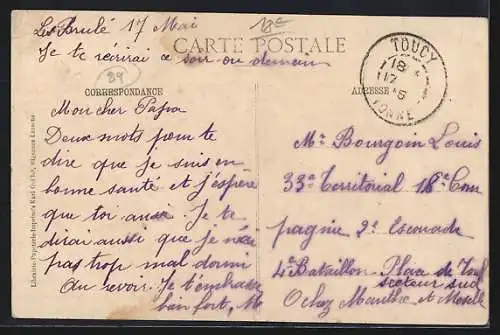 Le Brulé 17 Mai
18E
Je te récrirai ce soir ou demain
CARTE POSTALE
89
CORRESPONDANCE
ADRESSE
TOUCY
18
17 5
YONNE
Mon cher Papa
Deux mots pour te
dire que je suis en
bonne santé et j'espère
que toi aussi. Je te
dirai aussi que je n'ai
pas trop mal dormi
Au revoir. Je t'embrasse
bien fort, M
Mr Bourgoin Louis
33e Territorial 18e Com
pagnie 2e Escouade
4e Bataillon Place de Toul
secteur sud
Ochey Meurthe et Moselle
Librairie-Papeterie-Imprimerie